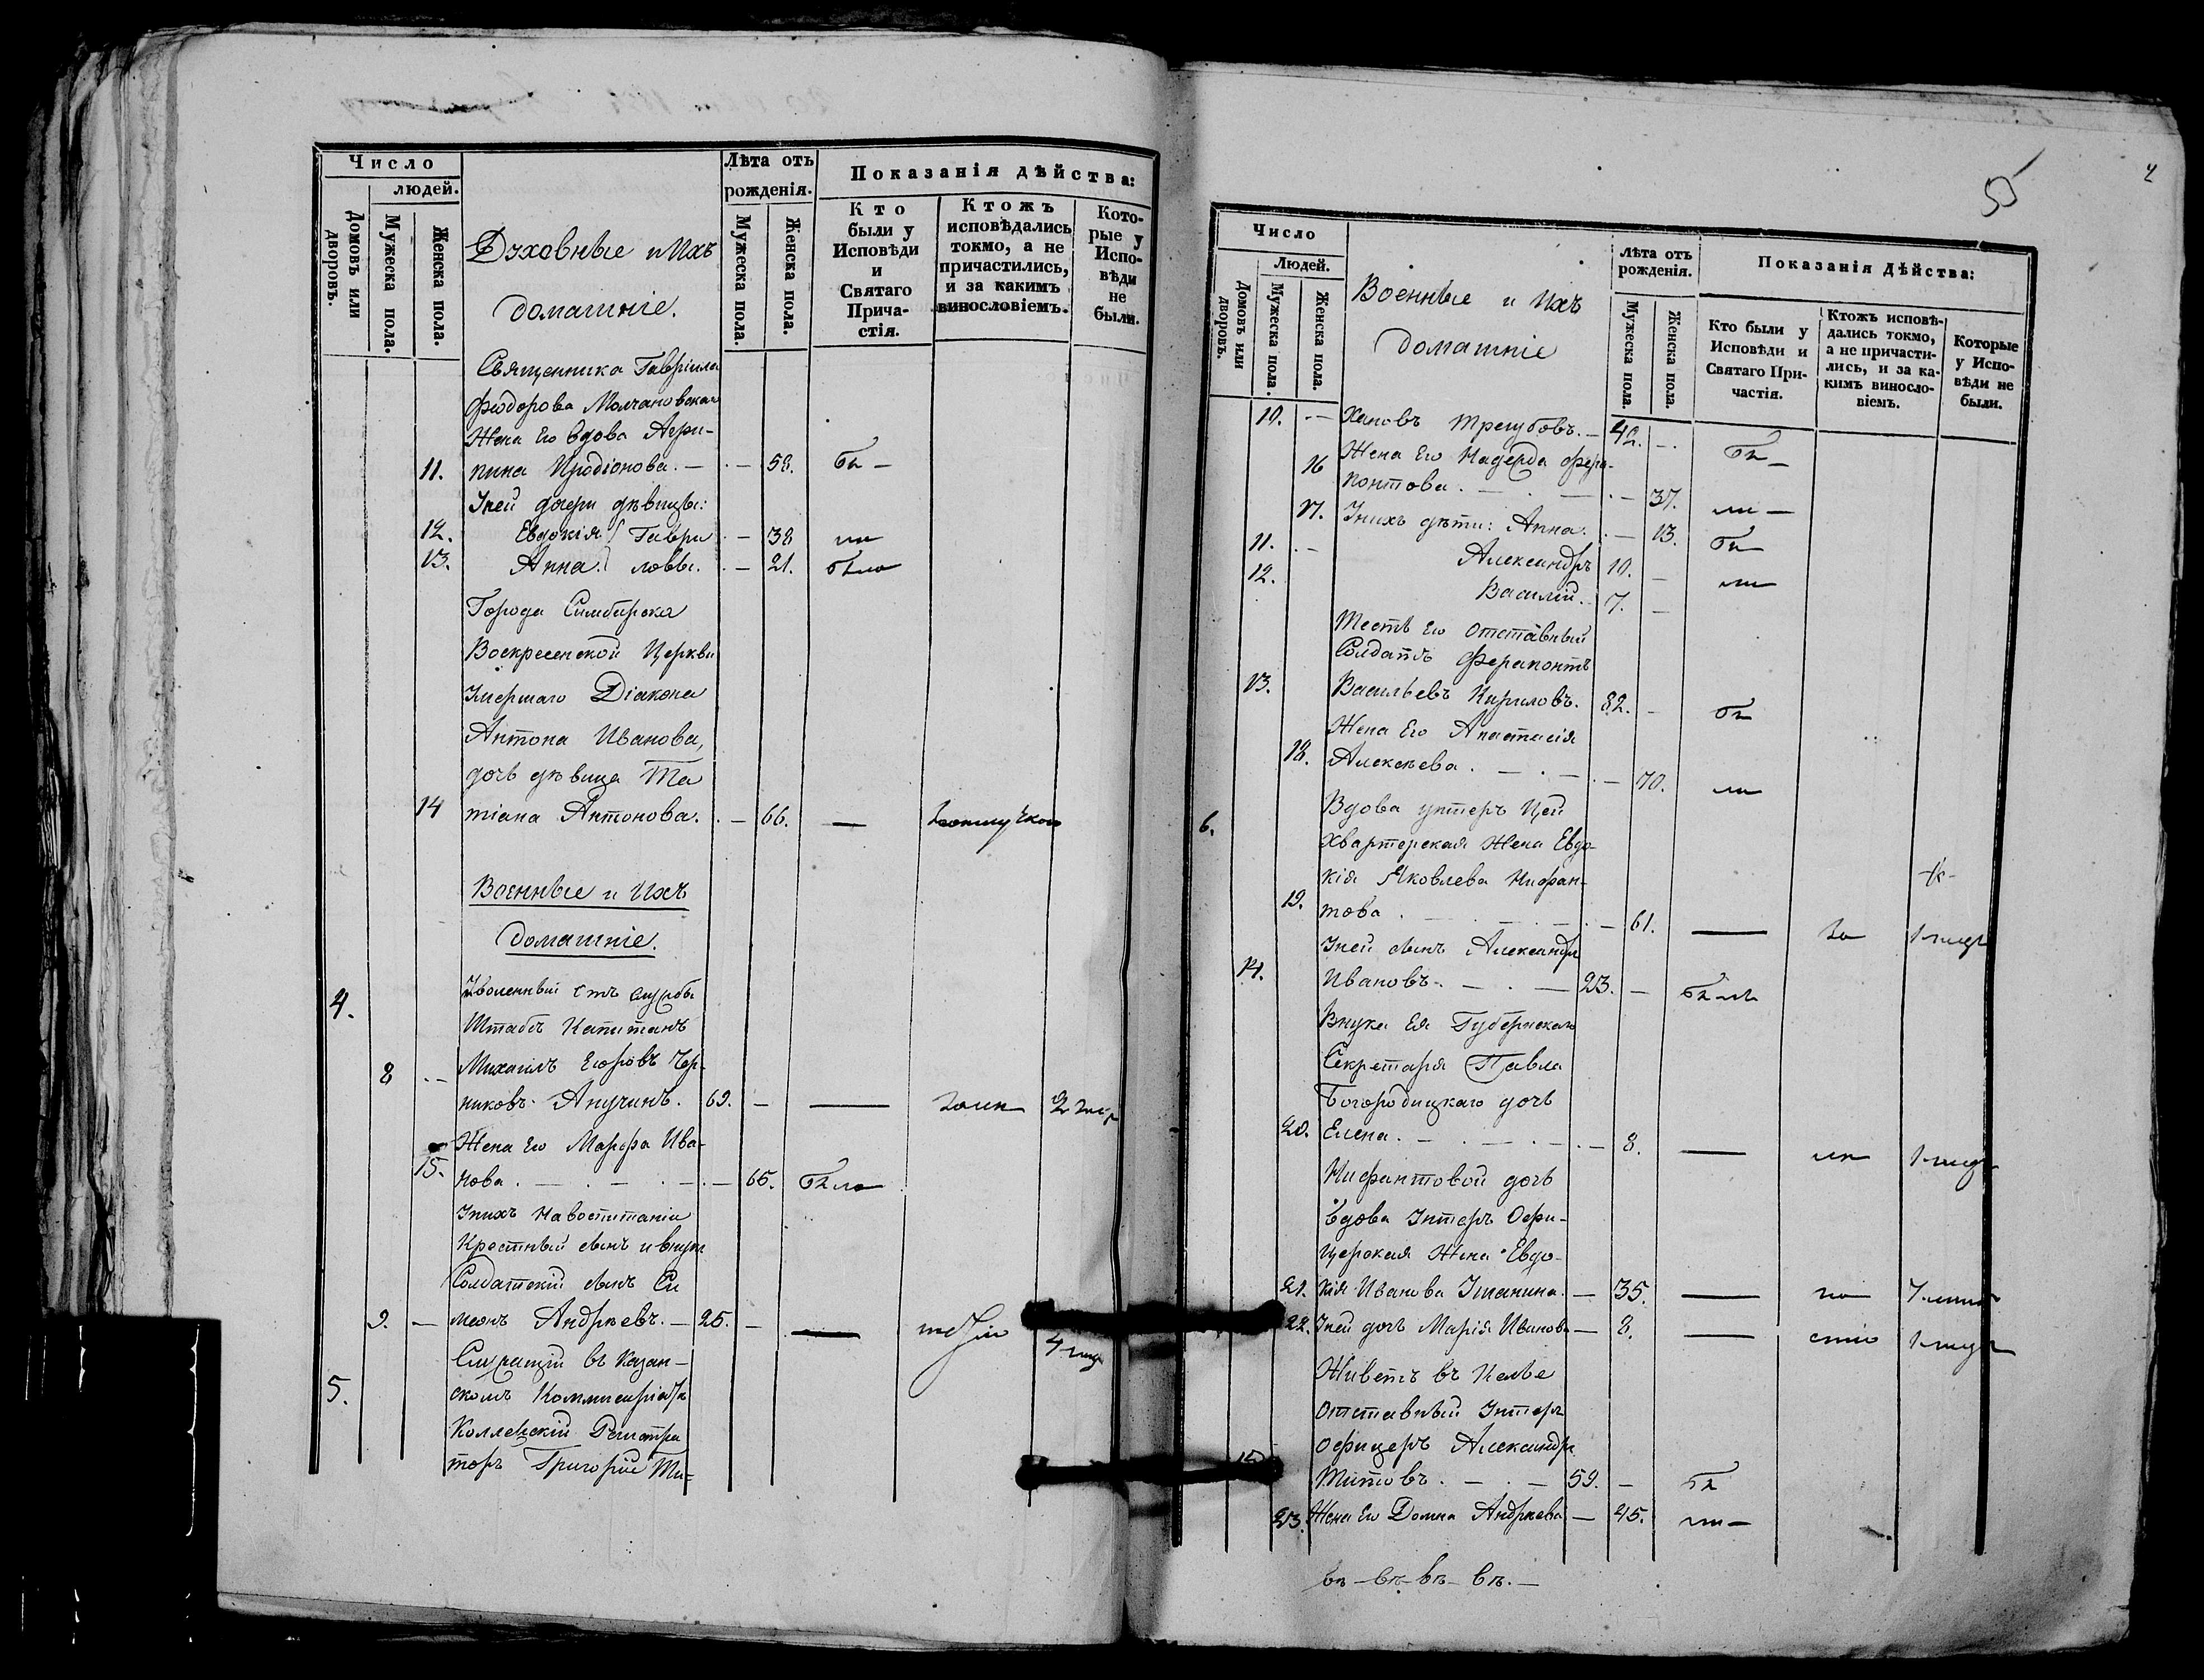 Число
людей.
Домовъ или дворовъ.
Мужеска пола.
Женска пола.
Духовные и Ихъ
домашніе.
Лѣта отъ
рожденія.
Мужеска пола.
Женска пола.
Показанія дѣйства:
Кто
были у
Исповѣди
и
Святаго
Прича-
стія.
Ктожъ
исповѣдались
токмо, а не
причастились,
и за какимъ
винословіемъ.
Кото-
рые у
Испо-
вѣди
не
были.
Священника Гавріила
Феодорова Молчановская
Жена Его вдова Агри-
11. пина Иродіонова. — . — 58. бы —
Унеи дочери дѣвицы:
12. Евдокія Гаври . — 38 ли
13. Анна. ловы. . — 21. была
Города Симбирска
Воскресенской Церкви
Умершаго Діакона
Антона Иванова,
дочь дѣвица Та
14 тіана Антонова. . — 66. —
Военные и Ихъ
домашніе.
4. Уволенный отъ службы
Штабсъ Капитанъ
8 . — Михаилъ Егоровъ Чер-
никовъ-Анучинъ. 69. — —
Жена Его Марфа Ива-
15. нова . — . — . — . — 65. была
Унихъ на воспитаніи
Крестный сынъ и внукъ
Солдатскій сынъ Си
9. — меонъ Андреевъ. — 25. — —
Служащій въ Казан-
5. скомъ Коммисаріатѣ
Коллежскій Регистра
торъ Григорій Ти=
55
Число
Людей.
Домовъ или дворовъ.
Мужеска пола.
Женска пола.
Военные и Ихъ
домашніе
Лѣта отъ
рожденія.
Мужеска пола.
Женска пола.
Показанія Дѣйства:
Кто были у
Исповѣди и
Святаго При-
частія.
Ктожъ исповѣ-
дались токмо,
а не причасти-
лись, и за ка-
кимъ виносло-
віемъ.
Которые
у Испо-
вѣди не
были.
10. — Трегубовъ. — 42. — бы —
Жена Его Надежда Фера-
16 понтова . — . — . — 37. ли —
17. Унихъ дѣти: Анна. . — 13. бы
11. . — Александръ 10. — ли
12. Василій. 7. —
Тесть Его Отставный
Солдатъ Ферапонтъ
13. Васильевъ Кириловъ. 82. — бы
Жена Его Анастасія
18. Алексѣева . — . — . — 70. ли
6. Вдова унтеръ Цей
хвартерская Жена Евдо-
кія Яковлева Нифан-
19. това . — . — . — 61. —
Унеи сынъ Александръ
14. Ивановъ. — . — 23. — былъ
Внука Ея Губернскаго
Секретаря Павла
Богородицкаго дочь
20. Елена . — . — . — . — 8. —
Нифантовой дочь
вдова Унтеръ Офи-
церская Жена Евдо-
21. кія Иванова — 35. —
22. Унеи дочь Марія Иванова — 8. —
Живетъ въ Кельѣ
Отставный Унтеръ
Офицеръ Александръ
15 Титовъ . — . — 59. — бы
23. Жена Его Домна Андреева — 45. ли —